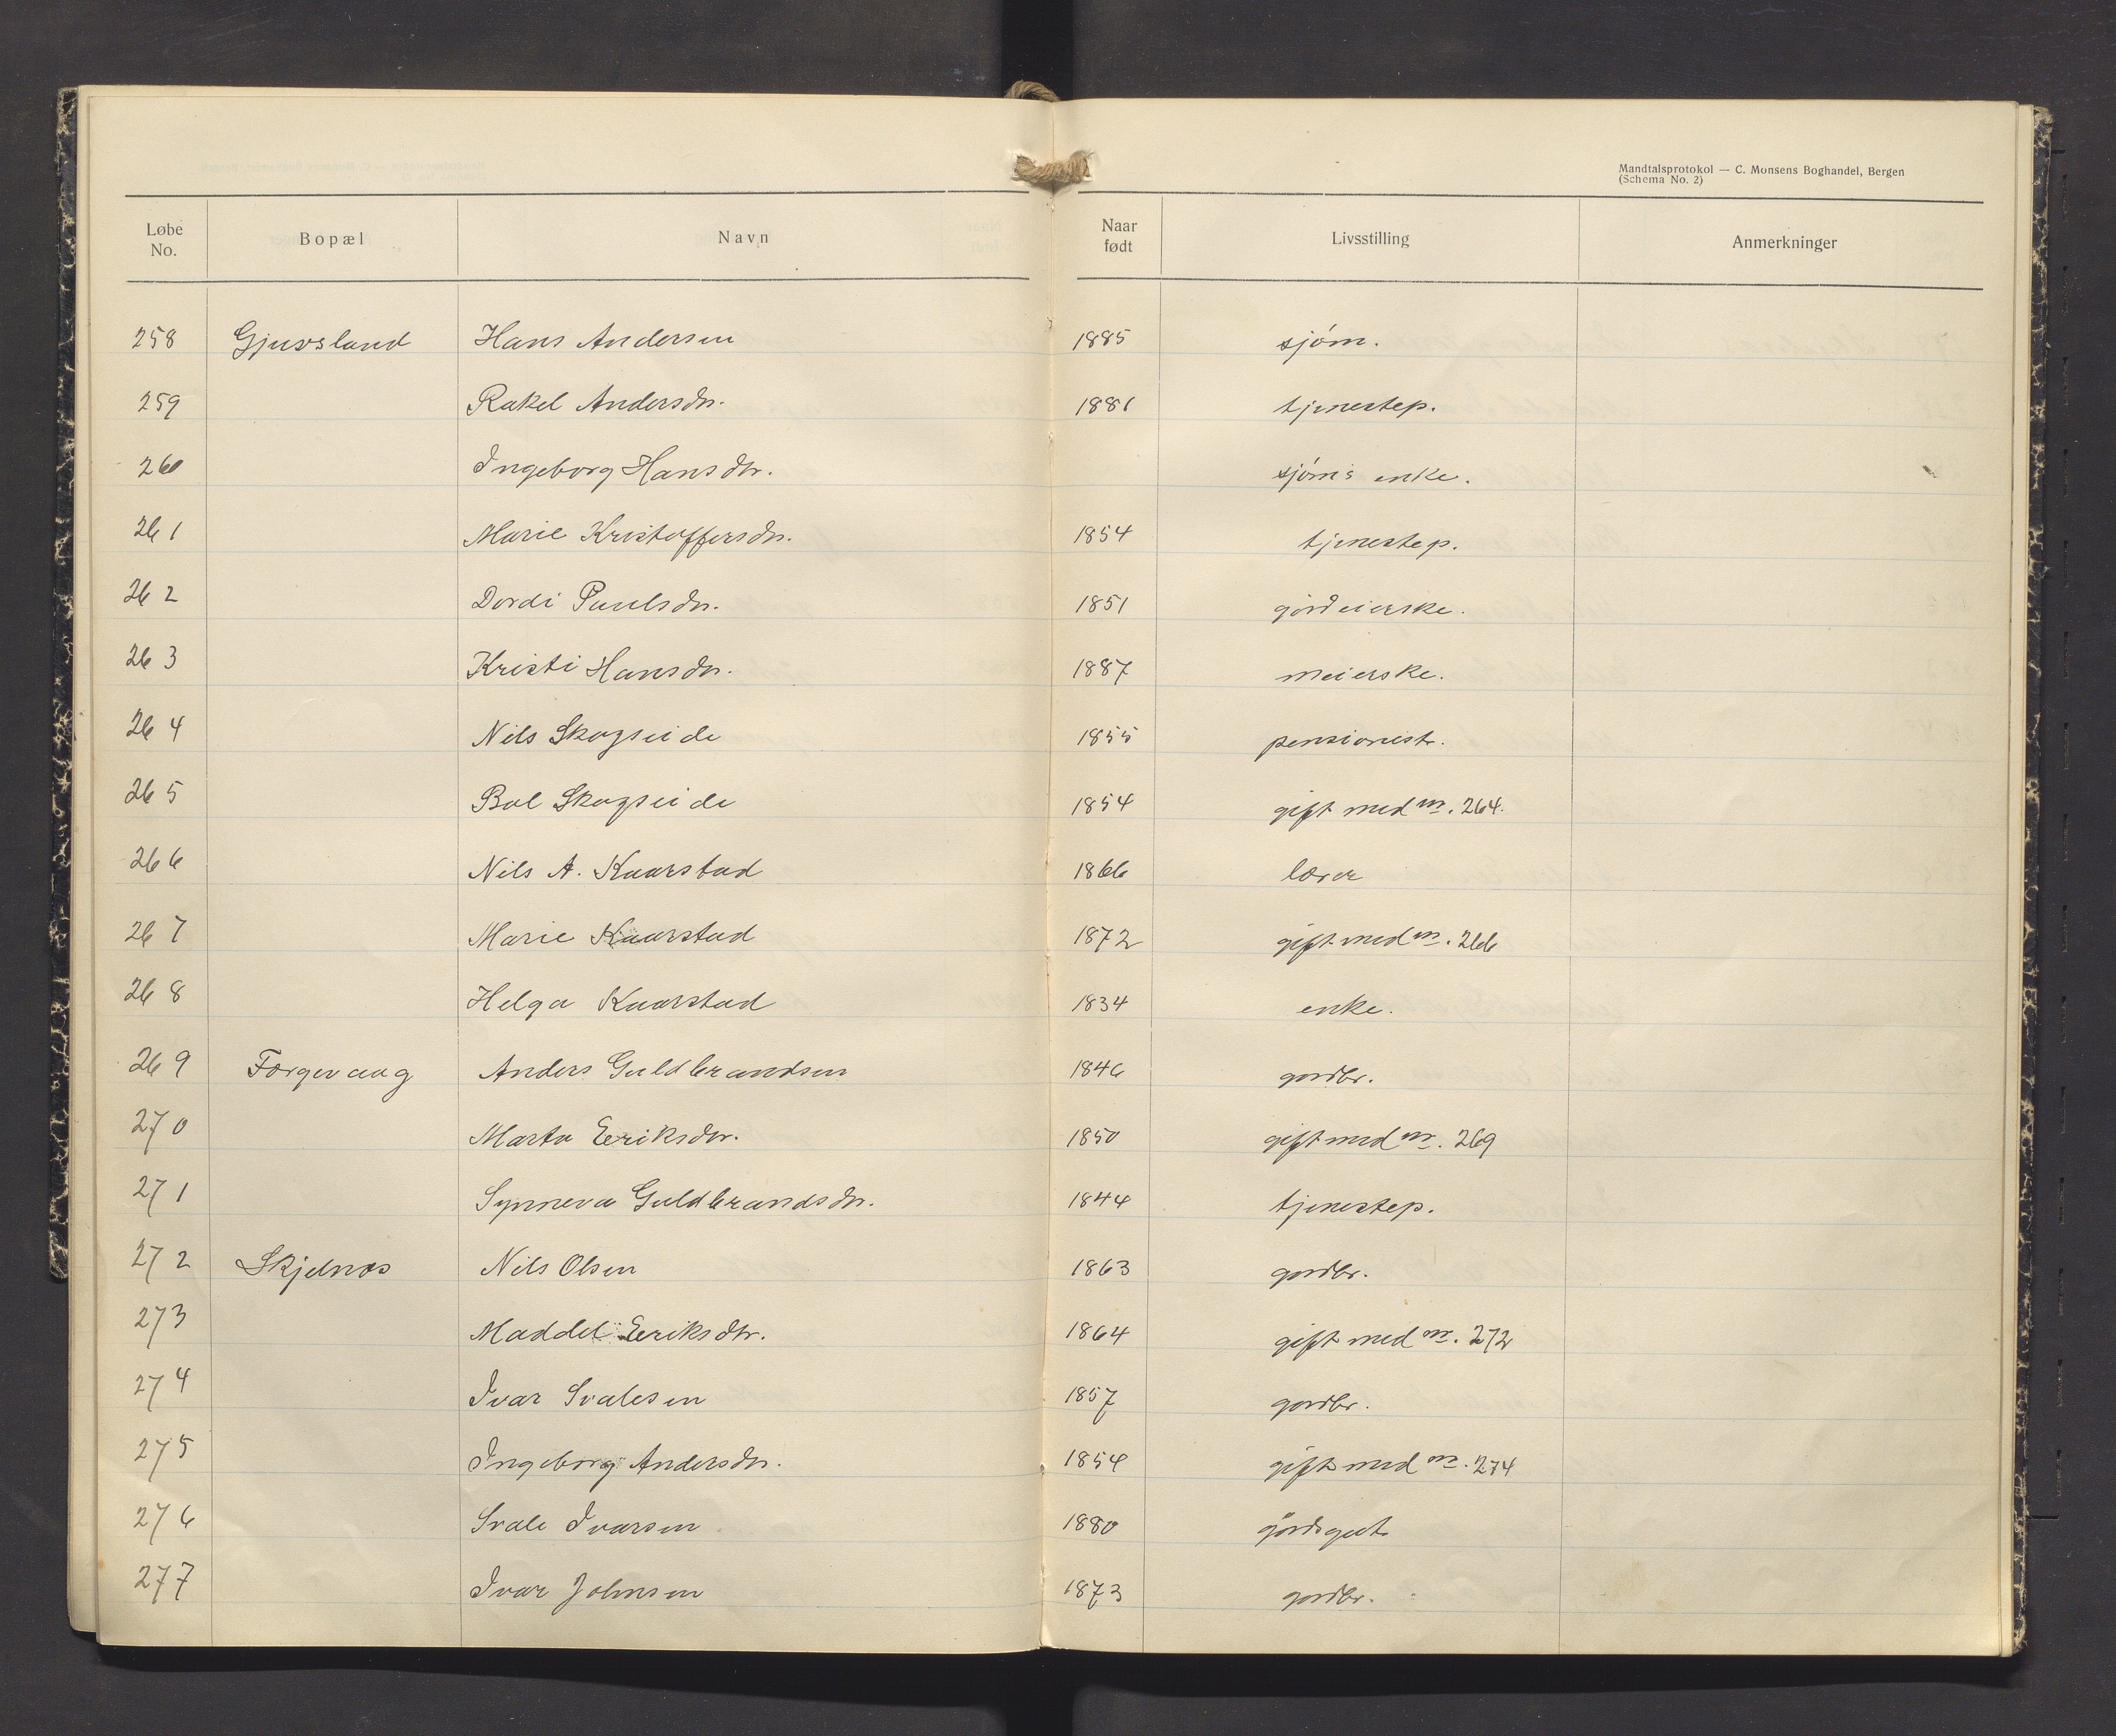 Mandtalsprotokol — C. Monsens Boghandel, Bergen
(Schema No. 2)
Løbe No. Bopæl Navn Naar født Livsstilling Anmerkninger
258 Gjuvsland Hans Andersen 1885 sjøm.
259 Rakel Andersdtr. 1881 tjenestep.
260 Ingeborg Hansdtr. sjøm's enke.
261 Marie Kristoffersdtr. 1854 tjenestep.
262 Dordi Paulsdtr. 1851 gårdeierske.
263 Kristi Hansdtr. 1887 meierske.
264 Nils Skogseide 1855 pensionist.
265 Bol Skogseide 1854 gift med nr. 264.
266 Nils A. Kaarstad 1866 lærer
267 Marie Kaarstad 1872 gift med nr. 266
268 Helga Kaarstad 1834 enke.
269 Færgevaag Anders Guldbrandsen 1846 gårdbr.
270 Marta Eeriksdtr. 1850 gift med nr. 269
271 Synneva Guldbrandsdtr. 1844 tjenestep.
272 Skjelnæs Nils Olsen 1863 gårdbr.
273 Maddel Eeriksdtr. 1864 gift med nr. 272
274 Ivar Svalesen 1857 gårdbr.
275 Ingeborg Andersdtr. 1854 gift med nr. 274
276 Svale Ivarsen 1880 gårdsgut
277 Ivar Johnsen 1873 gårdbr.